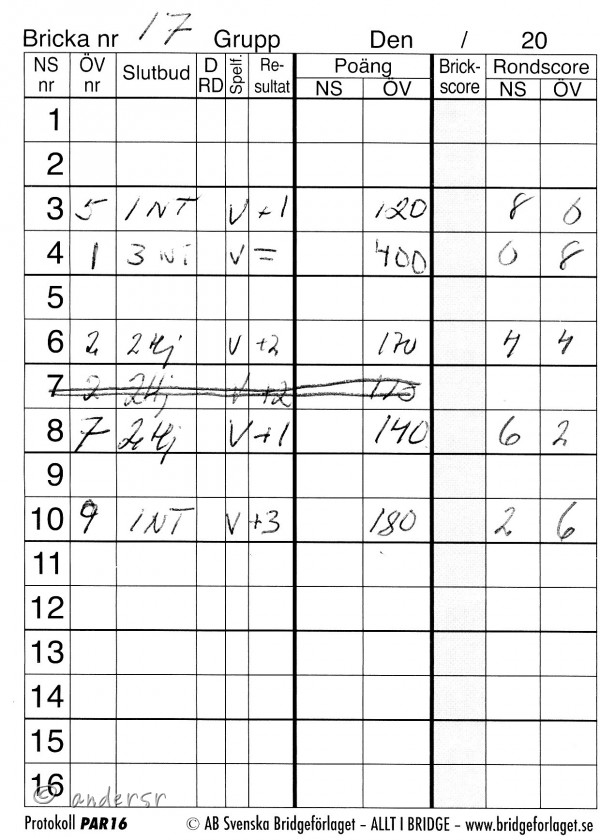 Bricka nr 17 Grupp Den / 20
NS nr ÖV nr Slutbud D RD Spelf. Re-sultat Poäng NS ÖV Brick-score Rondscore NS ÖV
1
2
3 5 1 NT V +1 120 8 0
4 1 3 NT V = 400 0 8
5
6 2 2 Hj V +2 170 4 4
7 2 2 Hj V +2 170
8 7 2 Hj V +1 140 6 2
9
10 9 1 NT V +3 180 2 6
11
12
13
14
15
16
© andersr
Protokoll PAR16 © AB Svenska Bridgeförlaget – ALLT I BRIDGE – www.bridgeforlaget.se